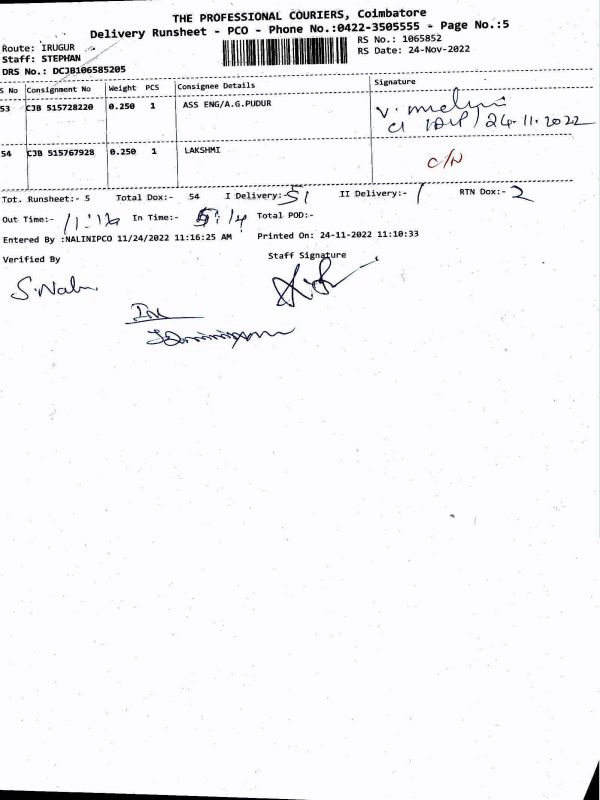 THE PROFESSIONAL COURIERS, Coimbatore
Delivery Runsheet - PCO - Phone No.:0422-3505555 - Page No.:5
Route: IRUGUR
Staff: STEPHAN
DRS No.: DCJB106585205
RS No.: 1065852
RS Date: 24-Nov-2022
S No Consignment No Weight PCS Consignee Details Signature
53 CJB 515728220 0.250 1 ASS ENG/A.G.PUDUR
24.11.2022
54 CJB 515767928 0.250 1 LAKSHMI C/N
Tot. Runsheet:- 5 Total Dox:- 54 I Delivery:- 51 II Delivery:- 1 RTN Dox:- 2
Out Time:- In Time:- Total POD:-
Entered By :NALINIPCO 11/24/2022 11:16:25 AM Printed On: 24-11-2022 11:10:33
Verified By Staff Signature